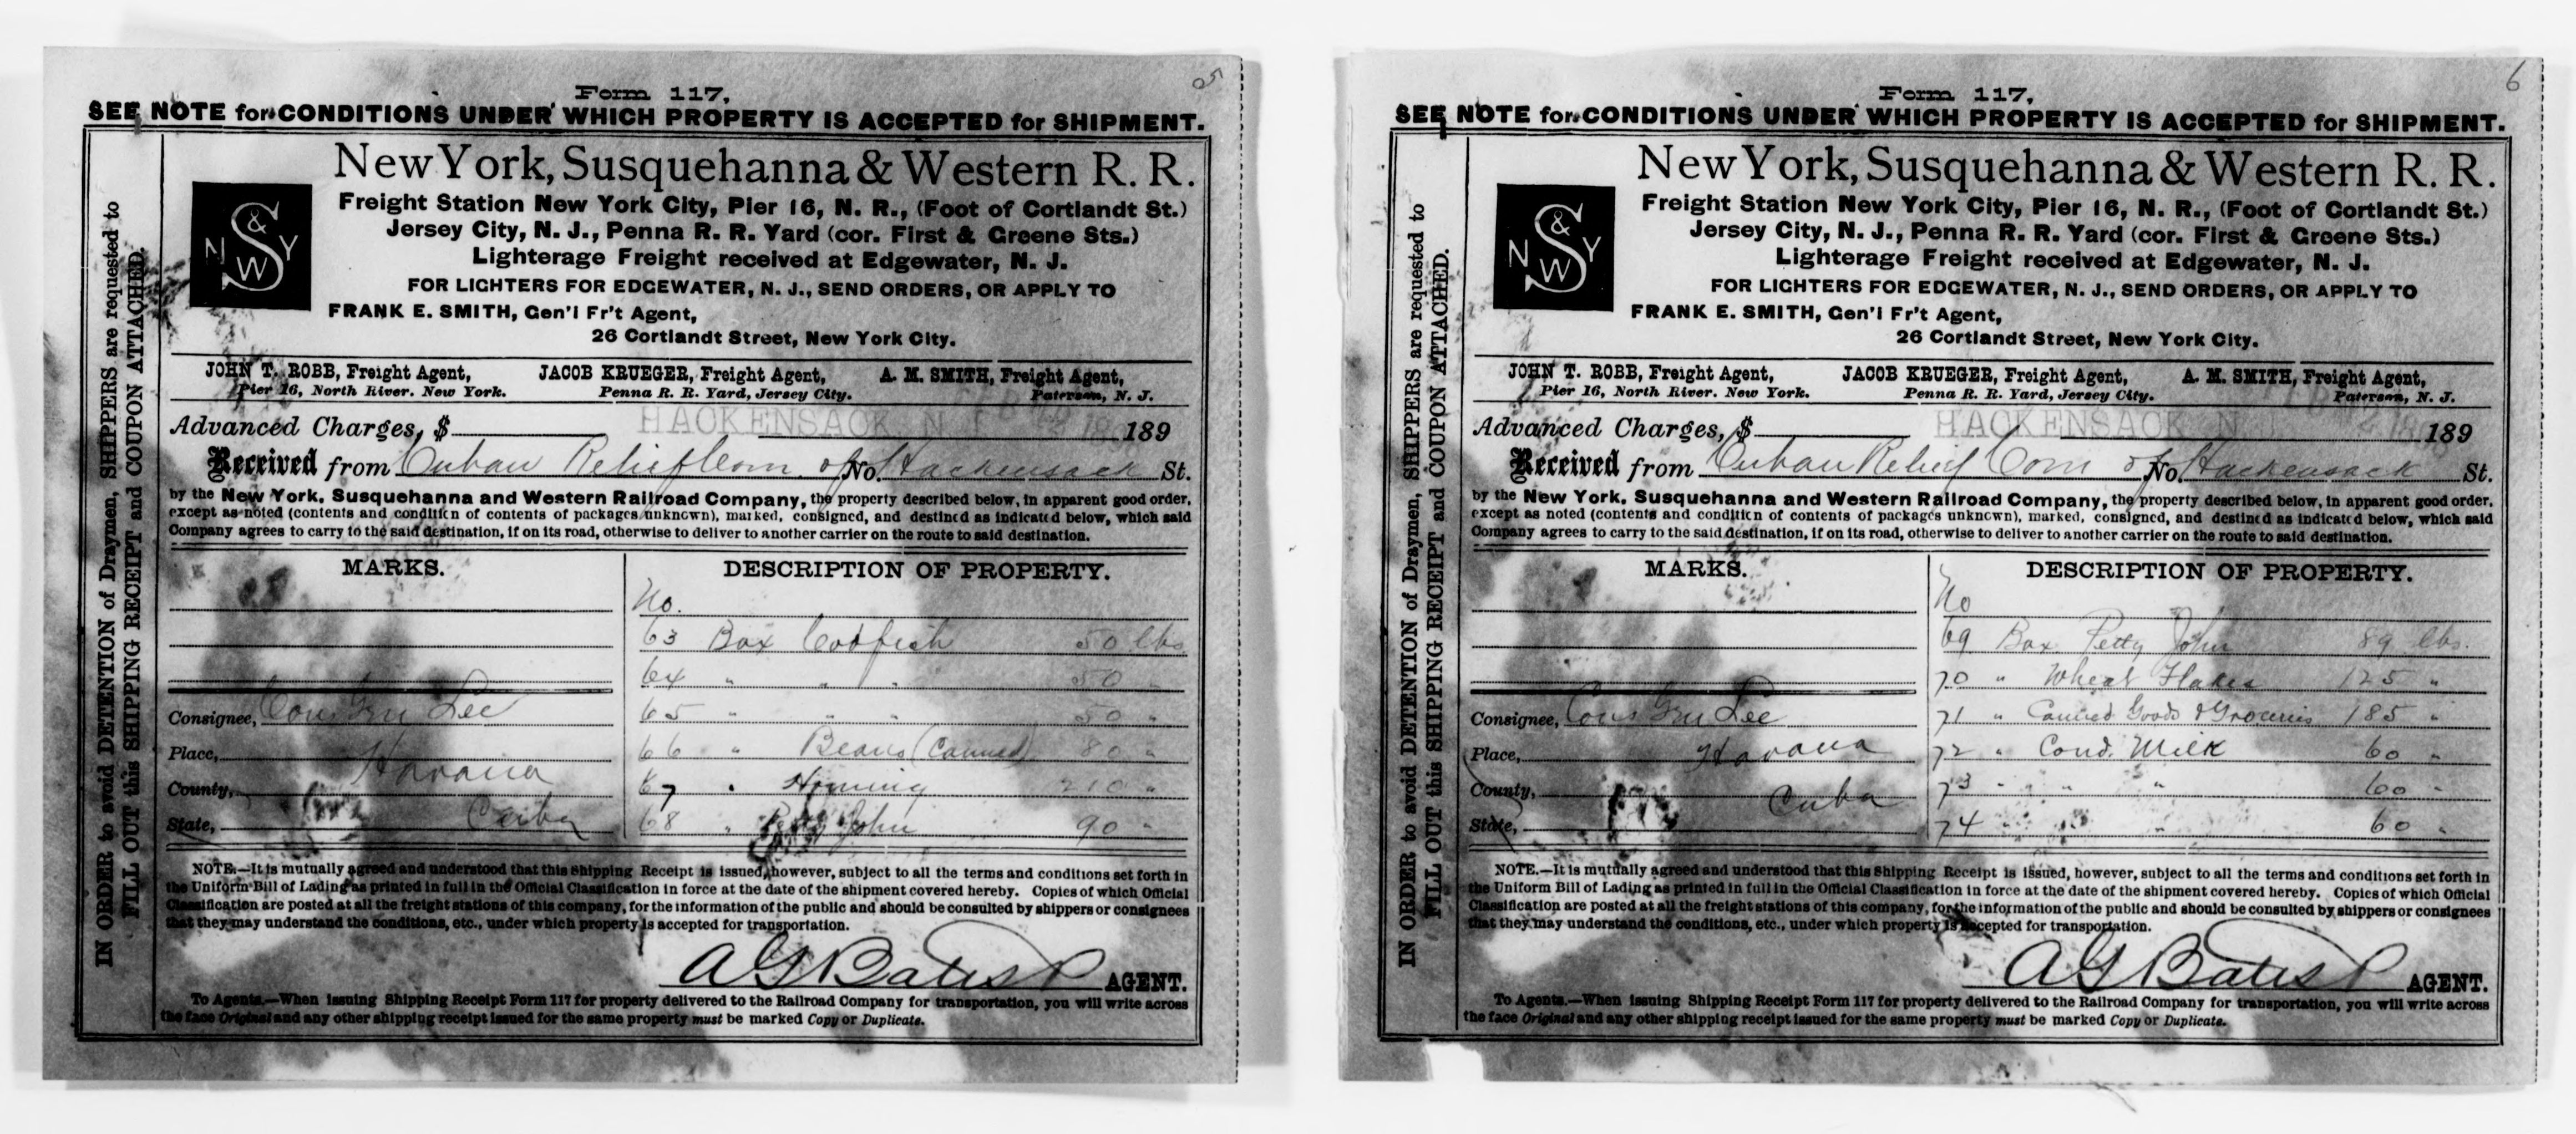 5
Form 117,
SEE NOTE for CONDITIONS UNDER WHICH PROPERTY IS ACCEPTED for SHIPMENT.
IN ORDER to avoid DETENTION of Draymen, SHIPPERS are requested to
FILL OUT this SHIPPING RECEIPT and COUPON ATTACHED.
N Y S & W
New York, Susquehanna & Western R. R.
Freight Station New York City, Pier 16, N. R., (Foot of Cortlandt St.)
Jersey City, N. J., Penna R. R. Yard (cor. First & Greene Sts.)
Lighterage Freight received at Edgewater, N. J.
FOR LIGHTERS FOR EDGEWATER, N. J., SEND ORDERS, OR APPLY TO
FRANK E. SMITH, Gen'l Fr't Agent,
26 Cortlandt Street, New York City.
JOHN T. ROBB, Freight Agent, JACOB KRUEGER, Freight Agent, A. M. SMITH, Freight Agent,
Pier 16, North River. New York. Penna R. R. Yard, Jersey City. Paterson, N. J.
HACKENSACK N. J.
Advanced Charges, $ 189
Received from Cuban Relief Com of No. Hackensack St.
by the New York, Susquehanna and Western Railroad Company, the property described below, in apparent good order,
except as noted (contents and condition of contents of packages unknown), marked, consigned, and destined as indicated below, which said
Company agrees to carry to the said destination, if on its road, otherwise to deliver to another carrier on the route to said destination.
MARKS. DESCRIPTION OF PROPERTY.
No.
63 Box Codfish 50 lbs
64 " " " 50 "
65 " " " 50 "
66 " Beans (Canned) 80 "
67 " Hominy 210 "
68 " Petty John 90 "
Consignee, Cons Gen Lee
Place, Havana
County,
State, Cuba
NOTE.—It is mutually agreed and understood that this Shipping Receipt is issued, however, subject to all the terms and conditions set forth in
the Uniform Bill of Lading as printed in full in the Official Classification in force at the date of the shipment covered hereby. Copies of which Official
Classification are posted at all the freight stations of this company, for the information of the public and should be consulted by shippers or consignees
that they may understand the conditions, etc., under which property is accepted for transportation.
A G Bates AGENT.
To Agents.—When issuing Shipping Receipt Form 117 for property delivered to the Railroad Company for transportation, you will write across
the face Original and any other shipping receipt issued for the same property must be marked Copy or Duplicate.
6
Form 117,
SEE NOTE for CONDITIONS UNDER WHICH PROPERTY IS ACCEPTED for SHIPMENT.
IN ORDER to avoid DETENTION of Draymen, SHIPPERS are requested to
FILL OUT this SHIPPING RECEIPT and COUPON ATTACHED.
N Y S & W
New York, Susquehanna & Western R. R.
Freight Station New York City, Pier 16, N. R., (Foot of Cortlandt St.)
Jersey City, N. J., Penna R. R. Yard (cor. First & Greene Sts.)
Lighterage Freight received at Edgewater, N. J.
FOR LIGHTERS FOR EDGEWATER, N. J., SEND ORDERS, OR APPLY TO
FRANK E. SMITH, Gen'l Fr't Agent,
26 Cortlandt Street, New York City.
JOHN T. ROBB, Freight Agent, JACOB KRUEGER, Freight Agent, A. M. SMITH, Freight Agent,
Pier 16, North River. New York. Penna R. R. Yard, Jersey City. Paterson, N. J.
HACKENSACK N.
Advanced Charges, $ 189
Received from Cuban Relief Com of No. Hackensack St.
by the New York, Susquehanna and Western Railroad Company, the property described below, in apparent good order,
except as noted (contents and condition of contents of packages unknown), marked, consigned, and destined as indicated below, which said
Company agrees to carry to the said destination, if on its road, otherwise to deliver to another carrier on the route to said destination.
MARKS. DESCRIPTION OF PROPERTY.
No
69 Box Petty John 89 lbs.
70 " Wheat Flakes 125 "
71 " Canned Goods & Groceries 185 "
72 " Cond. Milk 60 "
73 " " " 60 "
74 " " " 60 "
Consignee, Cons Gen Lee
Place, Havana
County, Cuba
State,
NOTE.—It is mutually agreed and understood that this Shipping Receipt is issued, however, subject to all the terms and conditions set forth in
the Uniform Bill of Lading as printed in full in the Official Classification in force at the date of the shipment covered hereby. Copies of which Official
Classification are posted at all the freight stations of this company, for the information of the public and should be consulted by shippers or consignees
that they may understand the conditions, etc., under which property is accepted for transportation.
A G Bates AGENT.
To Agents.—When issuing Shipping Receipt Form 117 for property delivered to the Railroad Company for transportation, you will write across
the face Original and any other shipping receipt issued for the same property must be marked Copy or Duplicate.